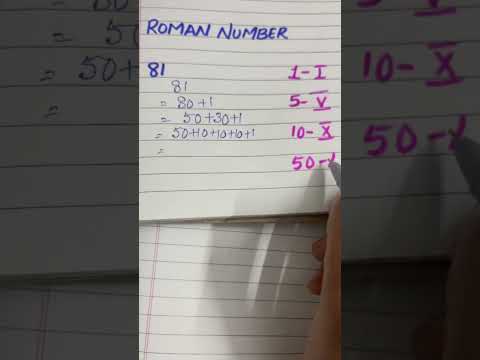 ROMAN NUMBER
81
81
= 80+1
= 50+30+1
= 50+10+10+10+1
=
1-I
5-V
10-X
50-